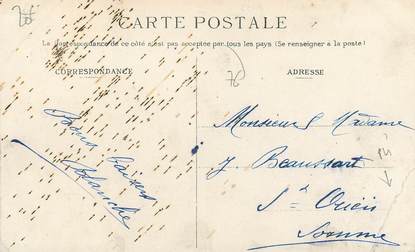 CARTE POSTALE
La correspondance de ce côté n'est pas acceptée par tous les pays (Se renseigner à la poste)
CORRESPONDANCE
ADRESSE
78
Bons Baisers
Blanche
Monsieur & Madame
J. Beaussart
St Ouen
Somme